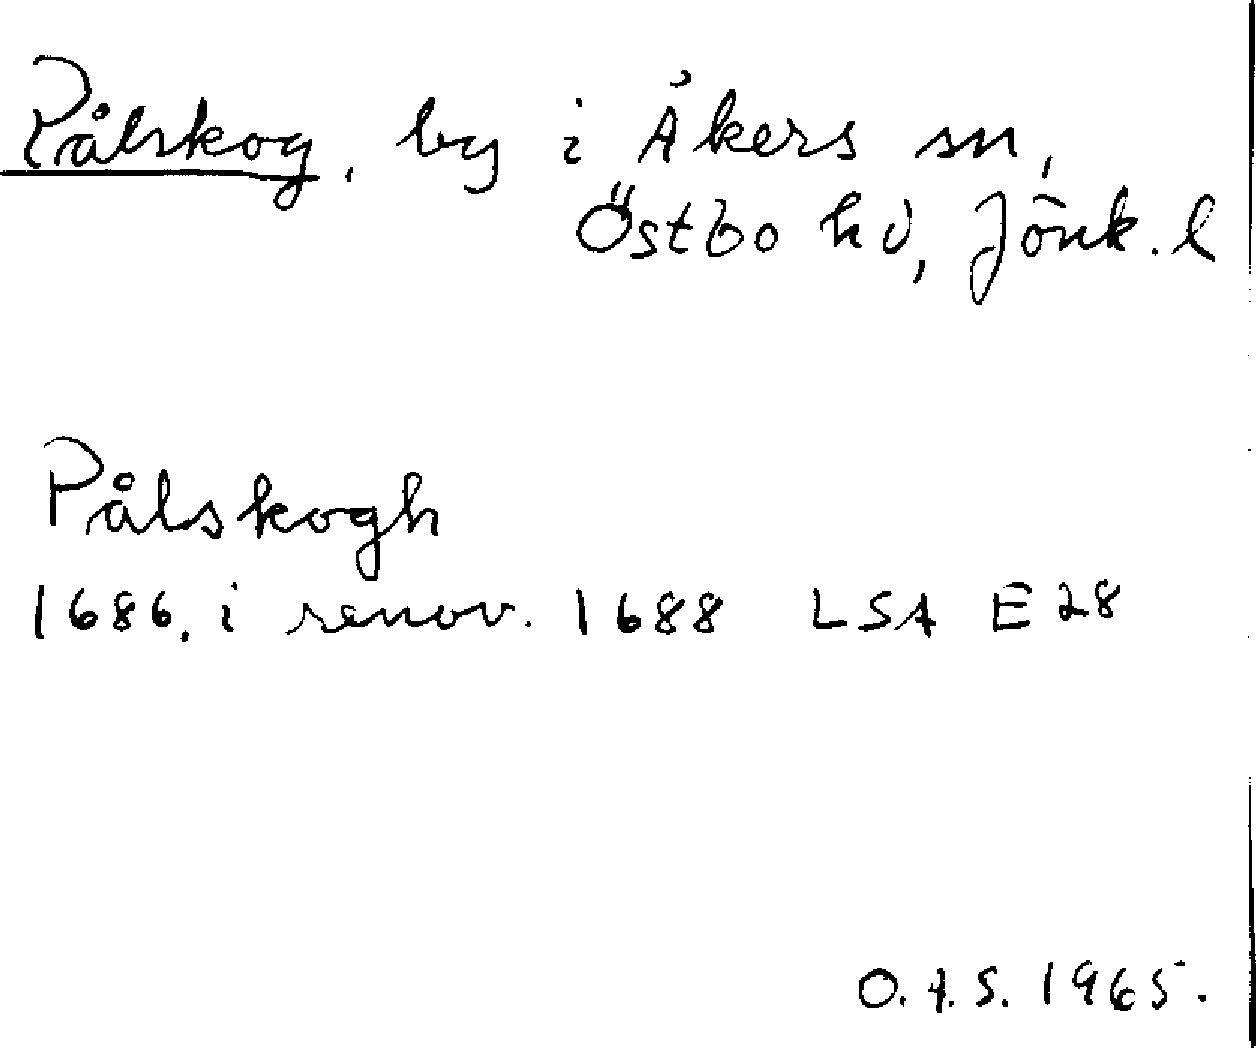 Pålskog, by i Åkers sn,
Östbo hd, Jönk. l
Pålskogh
1686, i renov. 1688 LSA E 28
O.A.S. 1965.